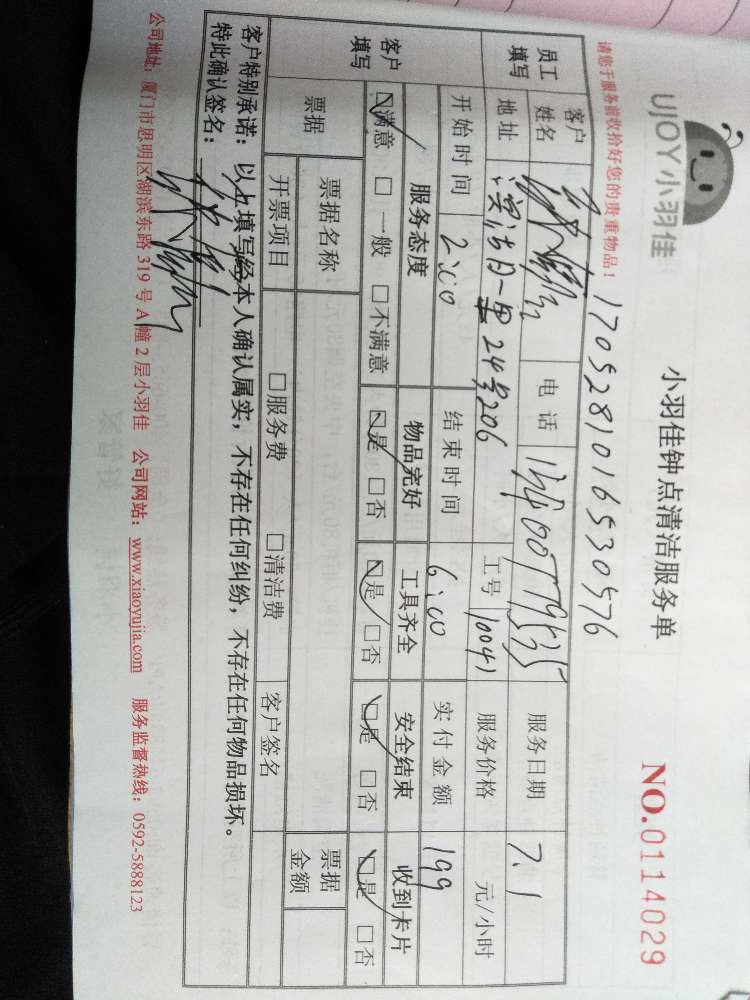 UJOY小羽佳
小羽佳钟点清洁服务单
NO.0114029
请您于服务前收拾好您的贵重物品！
17052810165530576
员工填写 客户姓名 电话 服务日期 7.1
地址 24号206 工号 10041 服务价格 元/小时
开始时间 2:00 结束时间 6:00 实付金额 199
客户填写 服务态度 物品完好 工具齐全 安全结束 收到卡片
☑满意 □一般 □不满意 ☑是 □否 ☑是 □否 ☑是 □否 ☑是 □否
票据 票据名称 票据金额
开票项目 □服务费 □清洁费 客户签名
客户特别承诺：以上填写经本人确认属实，不存在任何纠纷，不存在任何物品损坏。
特此确认签名：
公司地址：厦门市思明区湖滨东路319号A幢2层小羽佳 公司网站：www.xiaoyujia.com 服务监督热线：0592-5888123